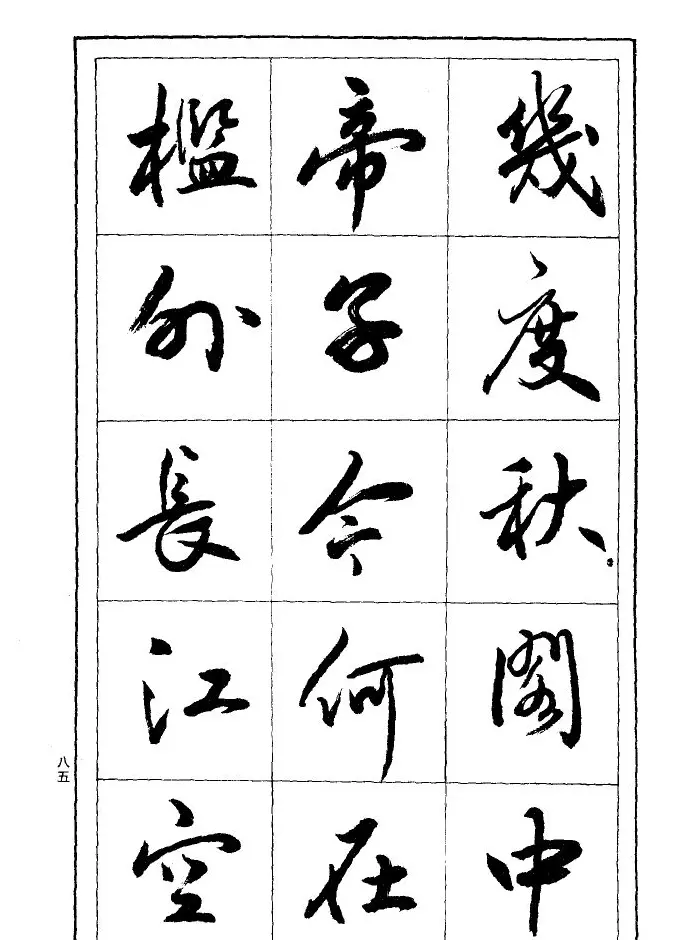 幾度秋。閣中
帝子今何在
檻外長江空
八五